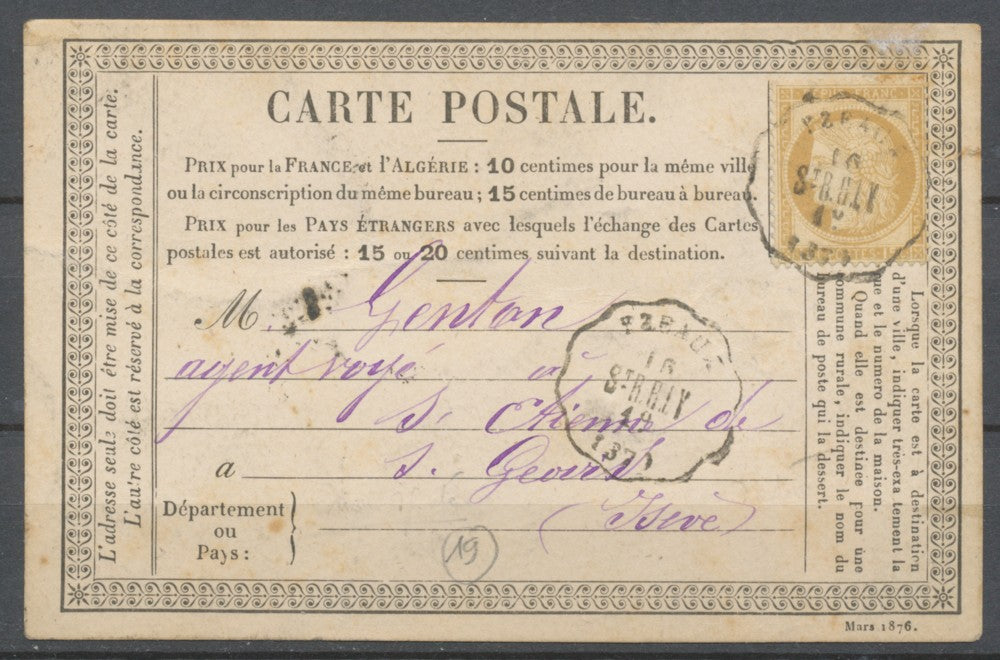 CARTE POSTALE.
PRIX pour la FRANCE et l'ALGÉRIE : 10 centimes pour la même ville
ou la circonscription du même bureau ; 15 centimes de bureau à bureau.
PRIX pour les PAYS ÉTRANGERS avec lesquels l'échange des Cartes
postales est autorisé : 15 ou 20 centimes suivant la destination.
M. Genton
agent voyé à
S. Etienne de
a S. Geoirs
(Isère)
Département
ou
Pays :
19
L'adresse seule doit être mise de ce côté de la carte.
L'autre côté est réservé à la correspondance.
Lorsque la carte est à destination
d'une ville, indiquer très-exactement la
rue et le numero de la maison.
Quand elle est destinée pour une
commune rurale, indiquer le nom du
bureau de poste qui la dessert.
16
16
Mars 1876.